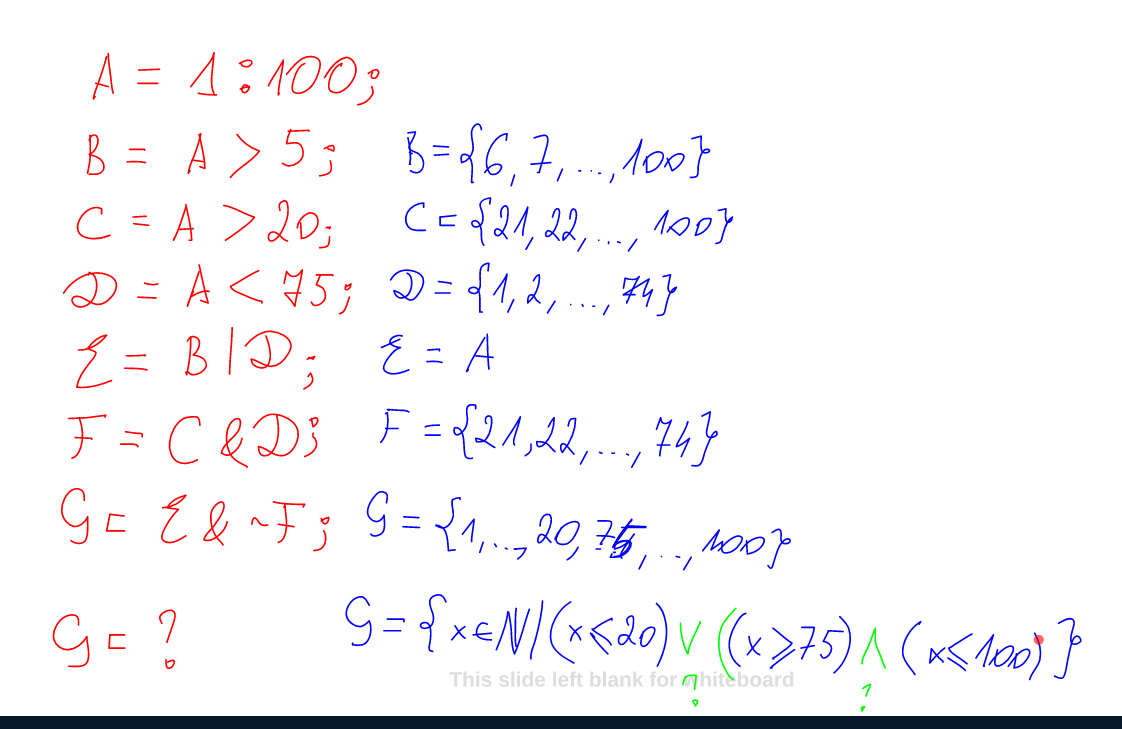 A = 1:100;
B = A > 5; B = {6, 7, ..., 100}
C = A > 20; C = {21, 22, ..., 100}
D = A < 75; D = {1, 2, ..., 74}
E = B | D; E = A
F = C & D; F = {21, 22, ..., 74}
G = E & ~F; G = {1, ..., 20, 75, ..., 100}
G = ? G = {x ∈ N | (x ≤ 20) ∨ ((x ≥ 75) ∧ (x ≤ 100)}
This slide left blank for whiteboard
? ?